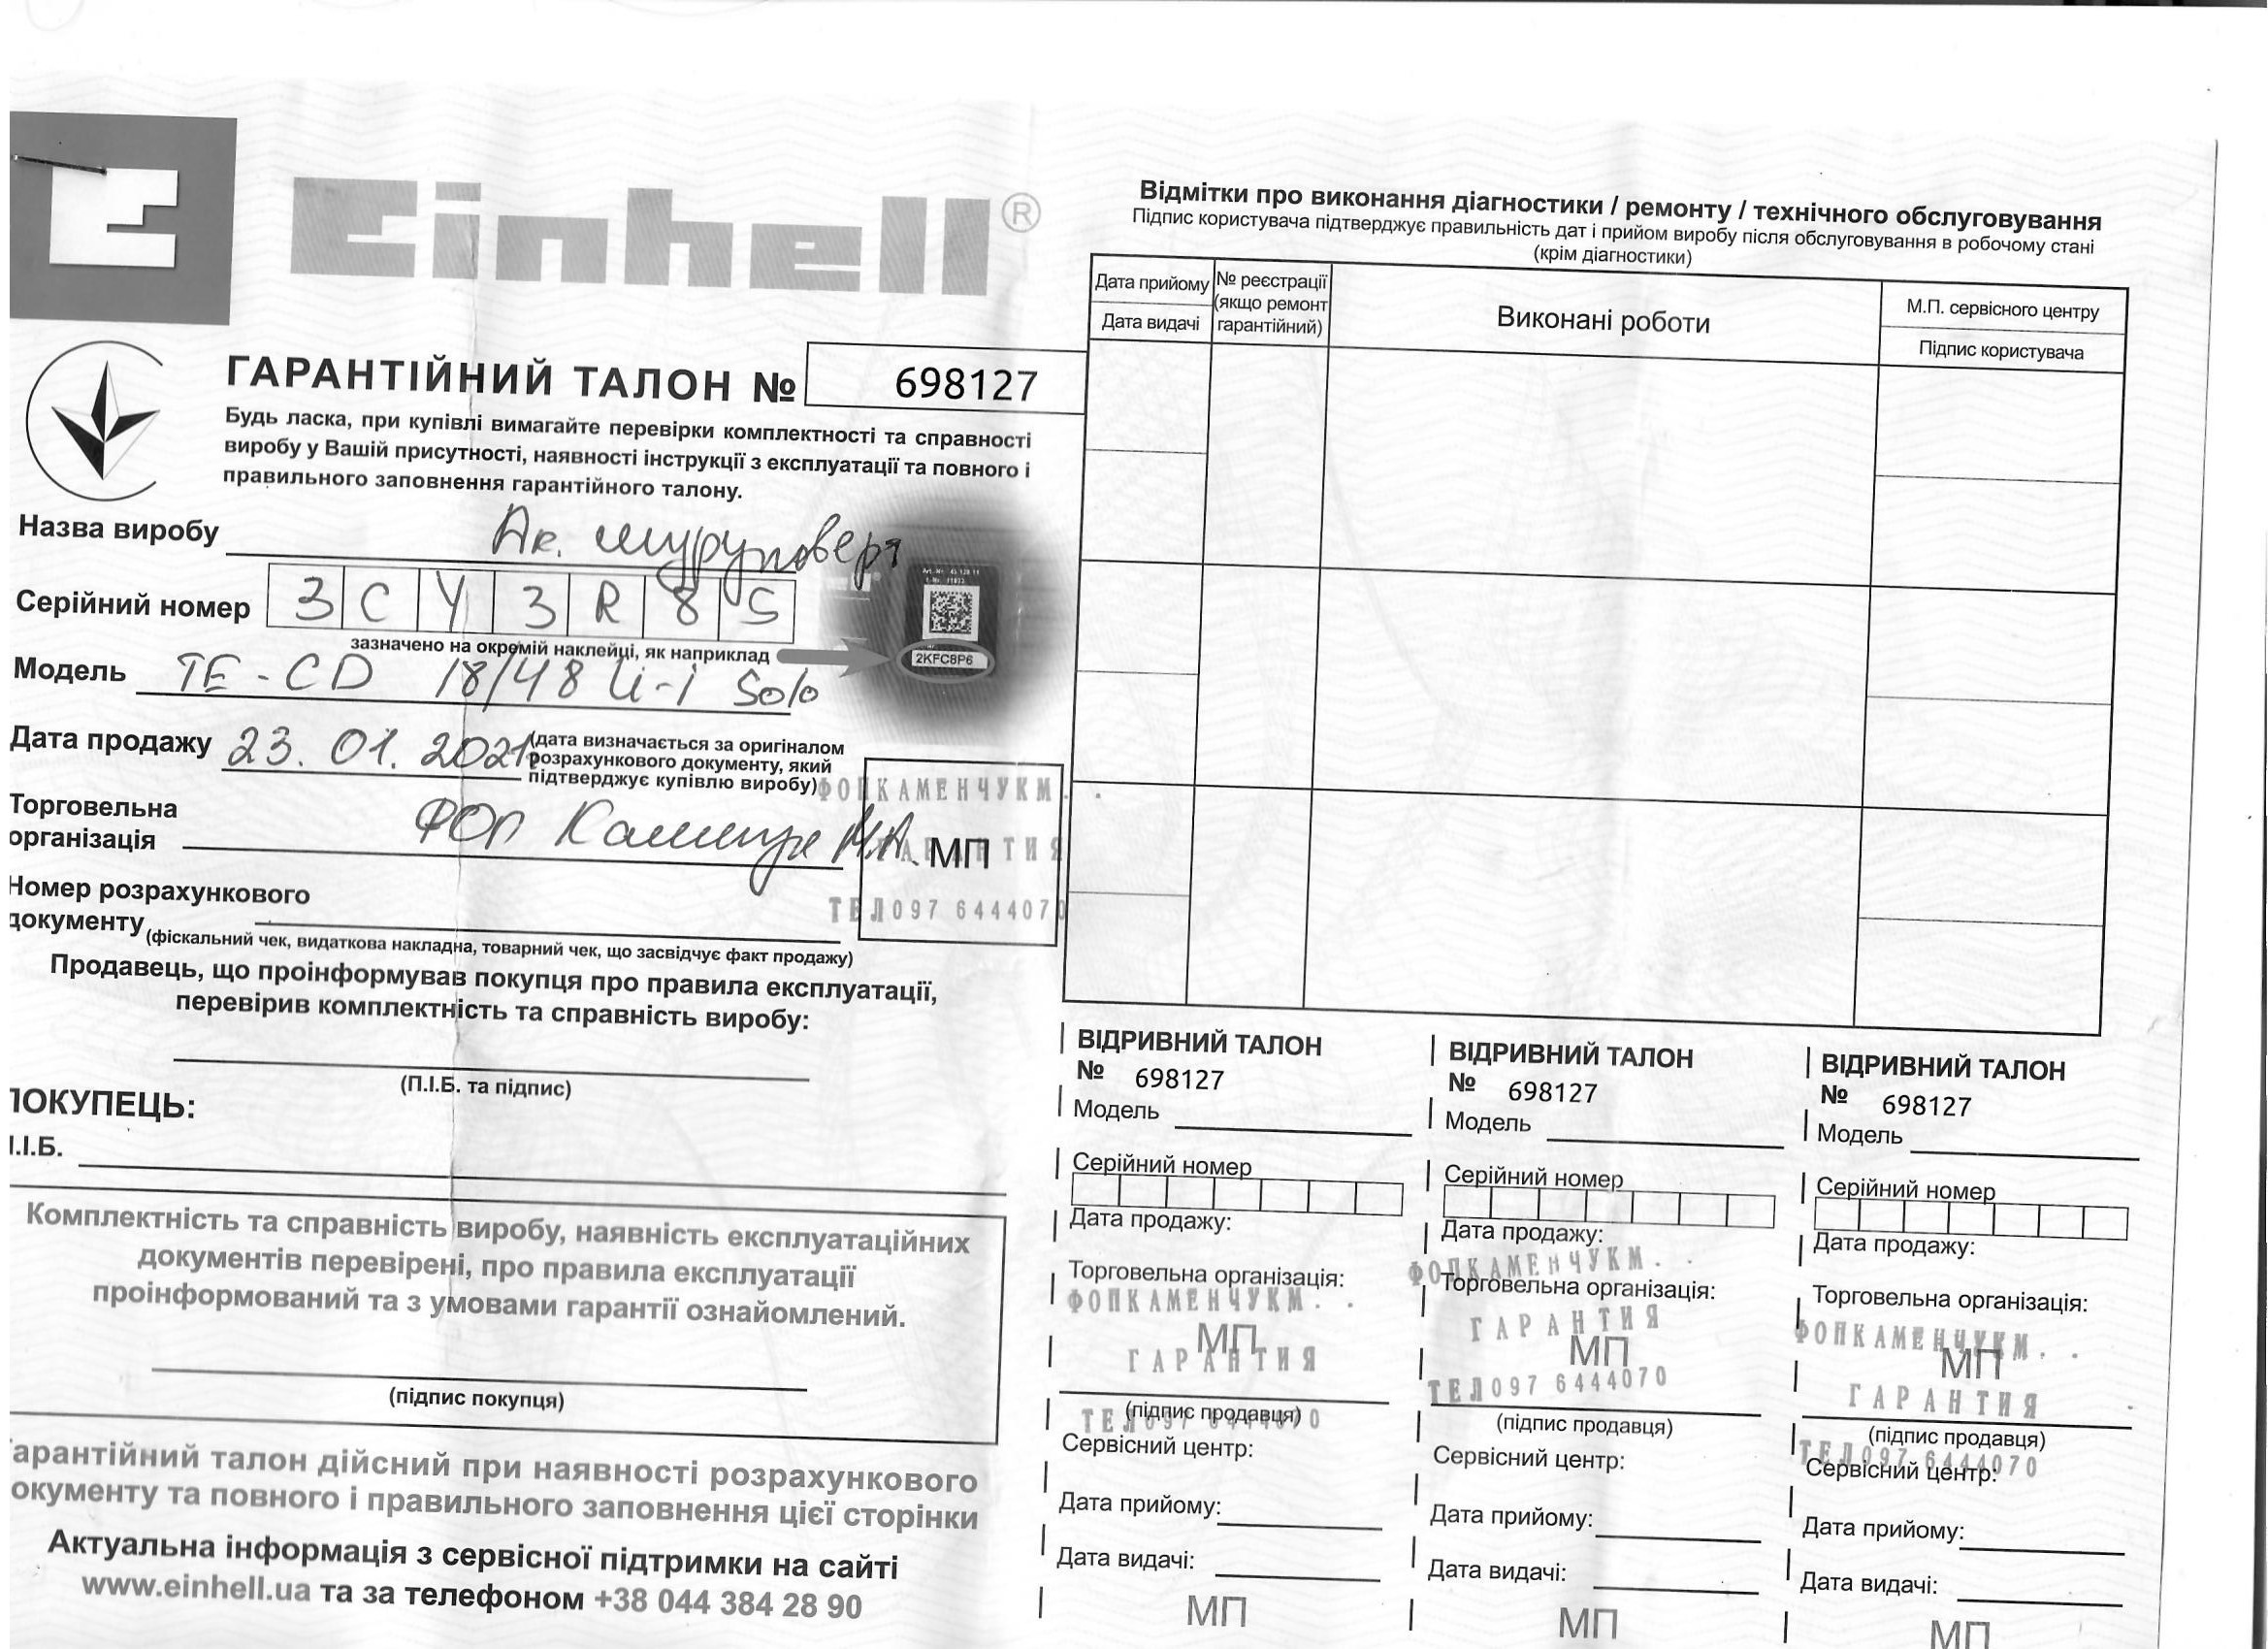 Einhell®
ГАРАНТІЙНИЙ ТАЛОН № 698127
Будь ласка, при купівлі вимагайте перевірки комплектності та справності
виробу у Вашій присутності, наявності інструкції з експлуатації та повного і
правильного заповнення гарантійного талону.
Назва виробу Ак. шуруповерт
Серійний номер 3 C Y 3 R 8 S
зазначено на окремій наклейці, як наприклад
2KFC8P6
Модель TE-CD 18/48 Li-i Solo
Дата продажу 23.01.2021
(дата визначається за оригіналом
розрахункового документу, який
підтверджує купівлю виробу)
Торговельна
організація ФОП
ФОПКАМЕНЧУКМ. .
ГАРАНТИЯ
МП
ТЕЛ097 6444070
Номер розрахункового
документу
(фіскальний чек, видаткова накладна, товарний чек, що засвідчує факт продажу)
Продавець, що проінформував покупця про правила експлуатації,
перевірив комплектність та справність виробу:
(П.І.Б. та підпис)
ПОКУПЕЦЬ:
П.І.Б.
Комплектність та справність виробу, наявність експлуатаційних
документів перевірені, про правила експлуатації
проінформований та з умовами гарантії ознайомлений.
(підпис покупця)
Гарантійний талон дійсний при наявності розрахункового
документу та повного і правильного заповнення цієї сторінки
Актуальна інформація з сервісної підтримки на сайті
www.einhell.ua та за телефоном +38 044 384 28 90
Відмітки про виконання діагностики / ремонту / технічного обслуговування
Підпис користувача підтверджує правильність дат і прийом виробу після обслуговування в робочому стані
(крім діагностики)
Дата прийому
Дата видачі
№ реєстрації
(якщо ремонт
гарантійний)
Виконані роботи
М.П. сервісного центру
Підпис користувача
ВІДРИВНИЙ ТАЛОН
№ 698127
Модель
Серійний номер
Дата продажу:
Торговельна організація:
ФОПКАМЕНЧУКМ. .
МП
ГАРАНТИЯ
(підпис продавця)
ТЕЛ097 6444070
Сервісний центр:
Дата прийому:
Дата видачі:
МП
ВІДРИВНИЙ ТАЛОН
№ 698127
Модель
Серійний номер
Дата продажу:
ФОПКАМЕНЧУКМ. .
Торговельна організація:
ГАРАНТИЯ
МП
ТЕЛ097 6444070
(підпис продавця)
Сервісний центр:
Дата прийому:
Дата видачі:
МП
ВІДРИВНИЙ ТАЛОН
№ 698127
Модель
Серійний номер
Дата продажу:
Торговельна організація:
ФОПКАМЕНЧУКМ. .
МП
ГАРАНТИЯ
(підпис продавця)
ТЕЛ097 6444070
Сервісний центр:
Дата прийому:
Дата видачі:
МП